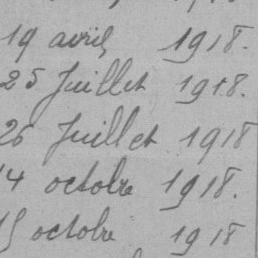 19 avril 1918.
25 Juillet 1918.
26 Juillet 1918
14 octobre 1918.
15 octobre 1918